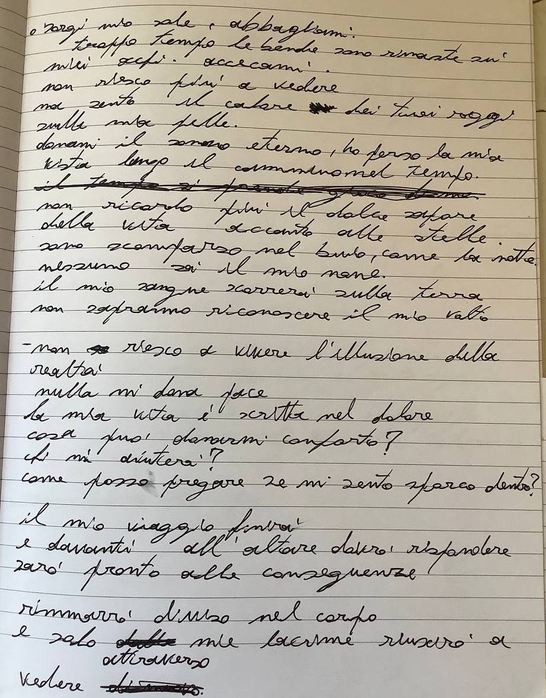 o sorgi mio sole, abbagliami.
troppo tempo le bende sono rimaste sui
miei occhi. accecami.
non riesco più a vedere
ma sento il calore dei tuoi raggi
sulla mia pelle.
donami il sonno eterno, ho perso la mia
vista lungo il cammino nel tempo.
il tempo si prende gioco
non ricordo più il dolce sapore
della vita accanto alle stelle.
sono scomparso nel buio, come la notte.
nessuno sa il mio nome.
il mio sangue scorrerà sulla terra
non sapranno riconoscere il mio volto
-non riesco a vivere l'illusione della
realtà
nulla mi dona pace
la mia vita è scritta nel dolore
cosa può donarmi conforto?
chi mi aiuterà?
come posso pregare se mi sento sporco dentro?
il mio viaggio finirà
e davanti all'altare dovrò rispondere
sarò pronto alle conseguenze
rimmarrò diviso nel corpo
e solo mie lacrime riuscirò a
attraverso
vedere